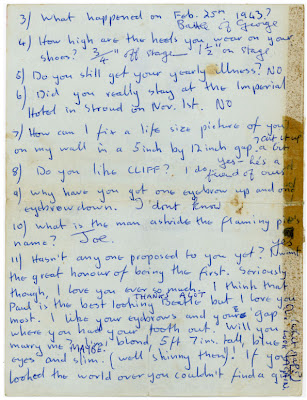 3) What happened on Feb. 25th 1943?
Battle of George
4) How high are the heels you wear on your
shoes? 3/4" off stage 1 1/2" on stage
5) Do you still get your yearly illness? NO
6) Did you really stay at the Imperial
Hotel in Stroud on Nov. 1st. NO
7) How can I fix a life size picture of you
on my wall in a 5 inch by 12 inch gap?
cut it up
8) Do you like CLIFF? I do. yes - he's a
friend of ours
9) Why have you got one eyebrow up and one
eyebrow down. I dont know
10) What is the man astride the flaming pie's
name? Joe.
11) Hasn't any one proposed to you yet? yes
the great honour of being the first. Seriously
though, I love you ever so much. I think that
Paul is the best looking Beatle but I love you
most. THANKS AGE? I like your eyebrows and your gap
where you had your tooth out. Will you
marry me? MAYBE. I'm blond, 5ft 7ins. tall, blue
eyes and slim. (well skinny then)! If you
looked the world over you couldn't find a